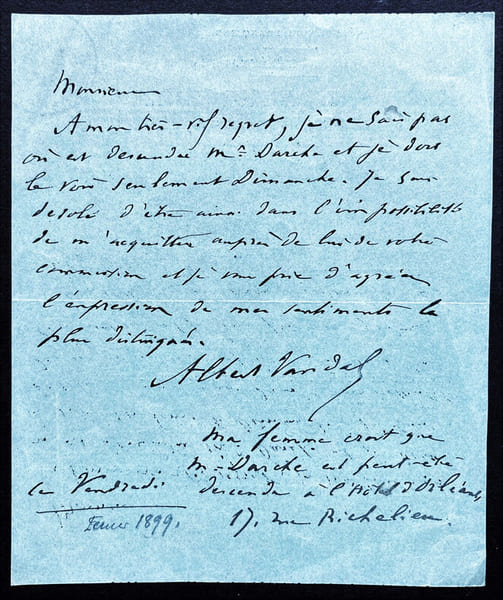 Monsieur
A mon très-vif regret, je ne sais pas
où est descendu Mr Darche et je dois
le voir seulement Dimanche. Je suis
désolé d'être ainsi dans l'impossibilité
de m'acquitter auprès de lui de votre
commission et je vous prie d'agréer
l'expression de mes sentiments les
plus distingués.
Albert Vandal
Ma femme croit que
M. Darche est peut-être
ce Vendredi descendu à l'Hôtel d'Orléans,
17, rue Richelieu.
Février 1899.